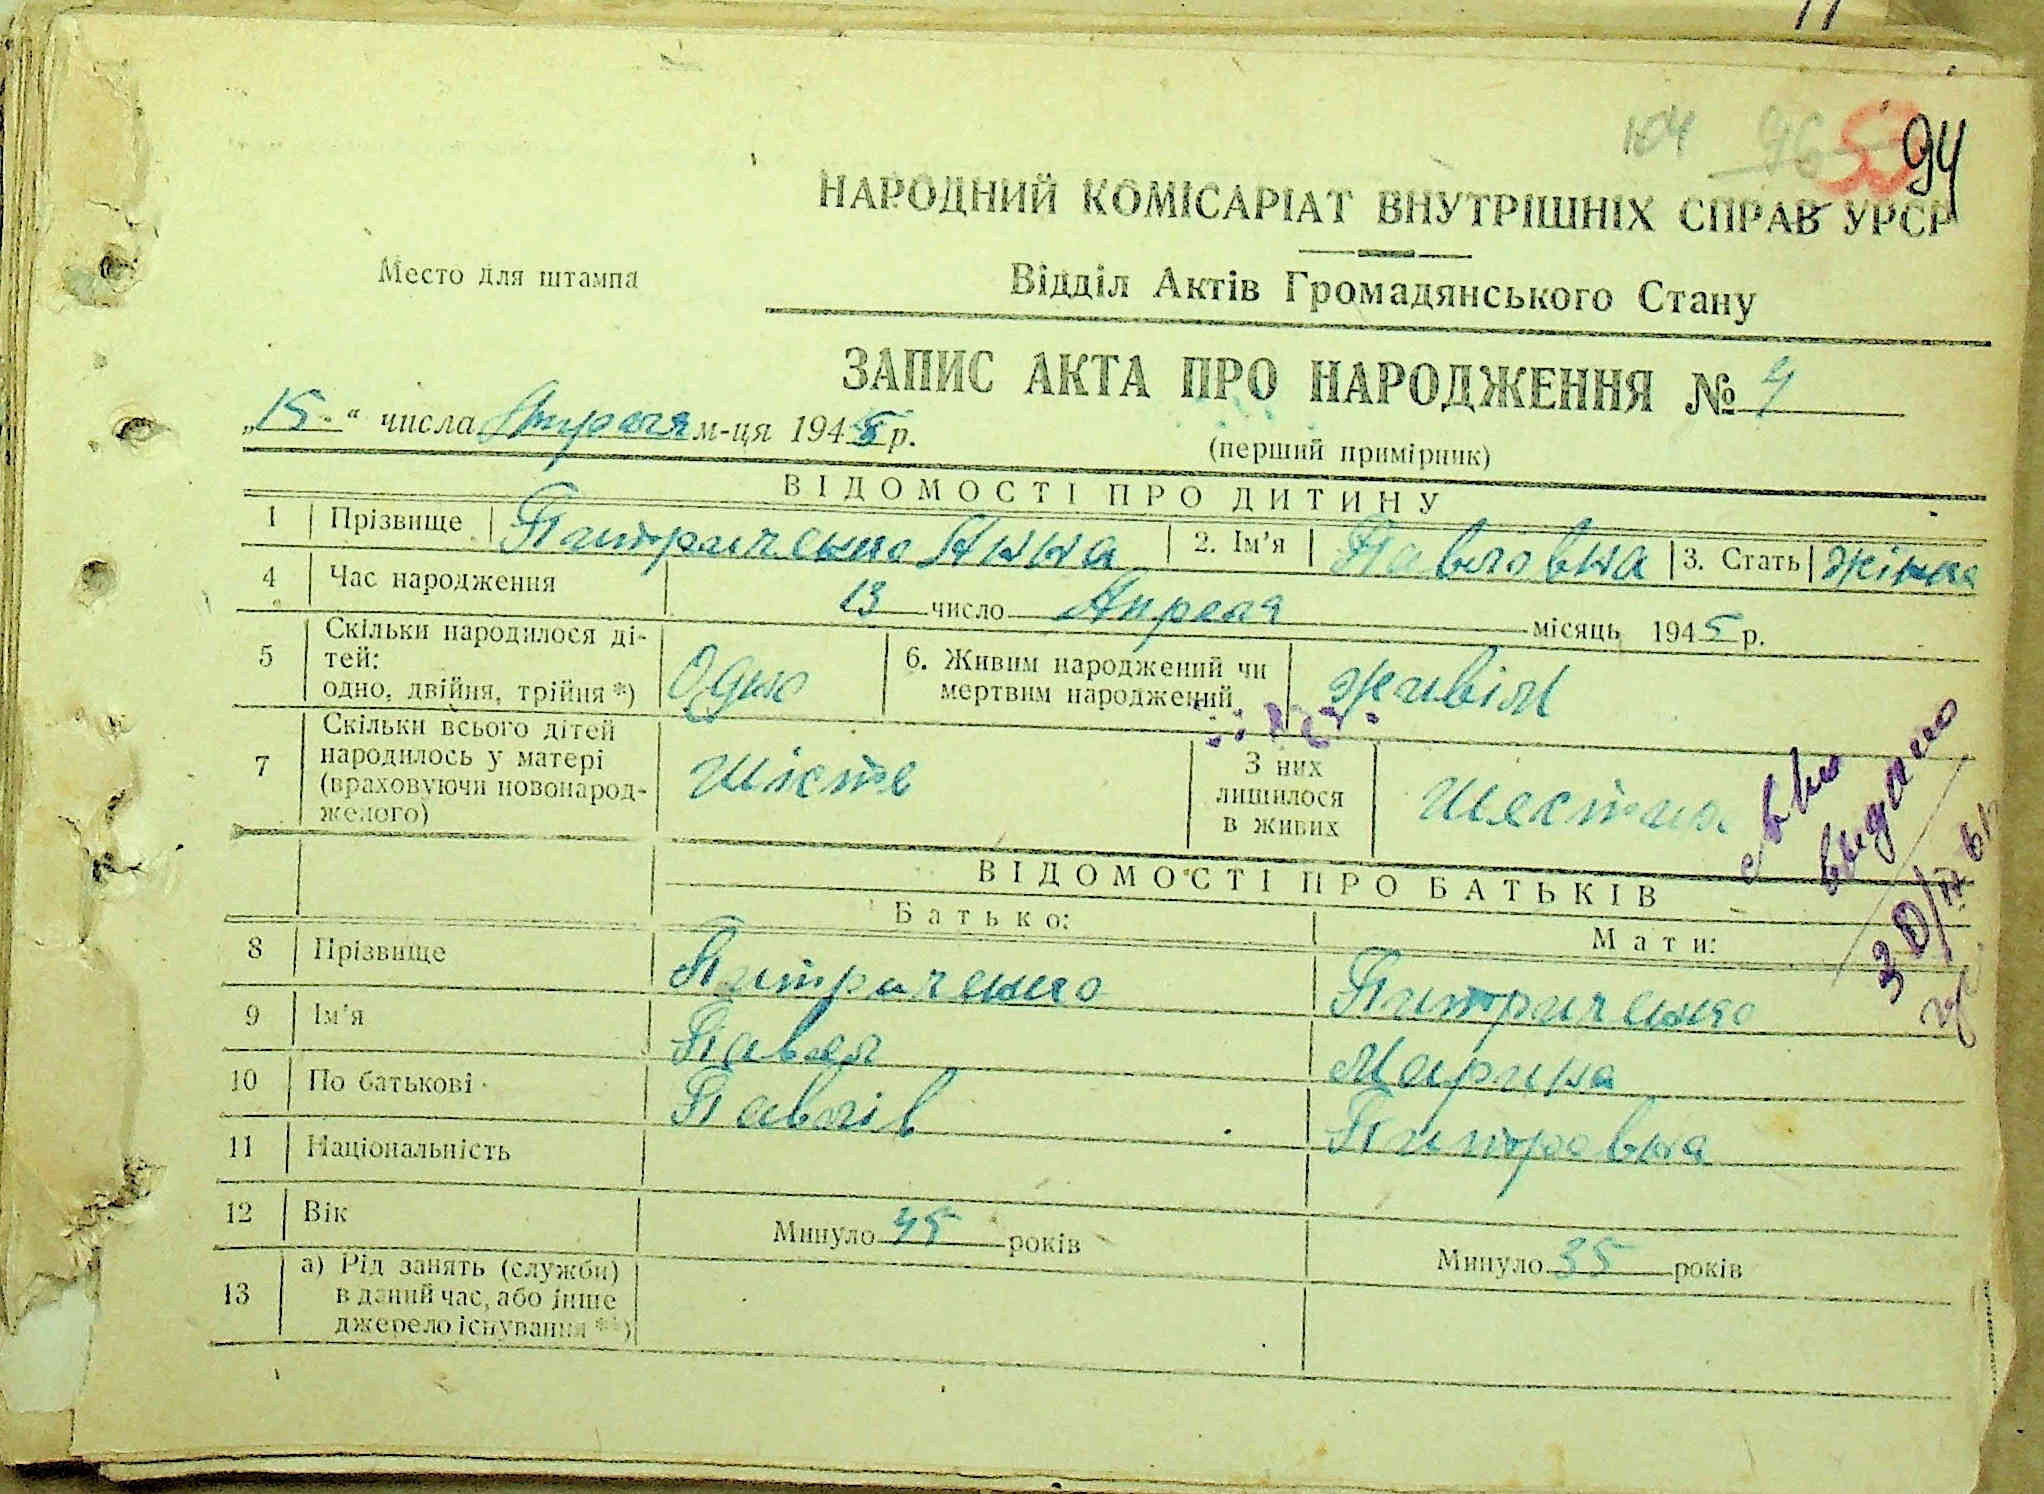 104 96 53 94
НАРОДНИЙ КОМІСАРІАТ ВНУТРІШНІХ СПРАВ УРСР
Место для штампа
Відділ Актів Громадянського Стану
ЗАПИС АКТА ПРО НАРОДЖЕННЯ № 4
„15“ числа Апреля м-ця 1945 р.
(перший примірник)
ВІДОМОСТІ ПРО ДИТИНУ
1 Прізвище Питриченко Анна 2. Ім'я Павловна 3. Стать жіноч
4 Час народження 13 число Апреля місяць 1945 р.
5 Скільки народилося ді-
тей:
одно, двійня, трійня *) Одно 6. Живим народжений чи
мертвим народжений живім
7 Скільки всього дітей
народилось у матері
(враховуючи новонарод-
женого) шість З них
лишилося
в живих шестира
с в-во
выдано
30/IV 61
ВІДОМОСТІ ПРО БАТЬКІВ
Батько: Мати:
8 Прізвище Питриченко Питриченко
9 Ім'я Павел Марина
10 По батькові Павлів Питровна
11 Національність
12 Вік Минуло 45 років Минуло 35 років
13 а) Рід занять (служби)
в даний час, або інше
джерело існування **)